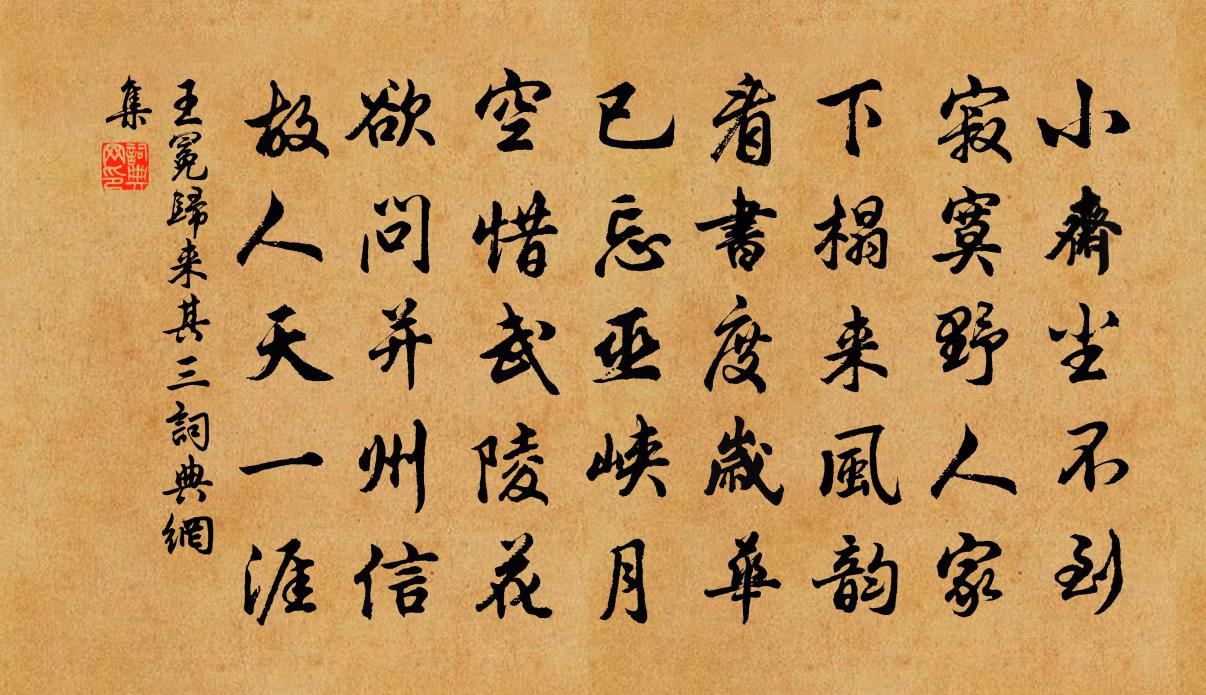 小齋尘不到
寂寞野人家
下榻来風韵
看書度歲華
已忘巫峡月
空惜武陵花
欲问并州信
故人天一涯
王冕歸来其三詞典網
集
詞典
网印